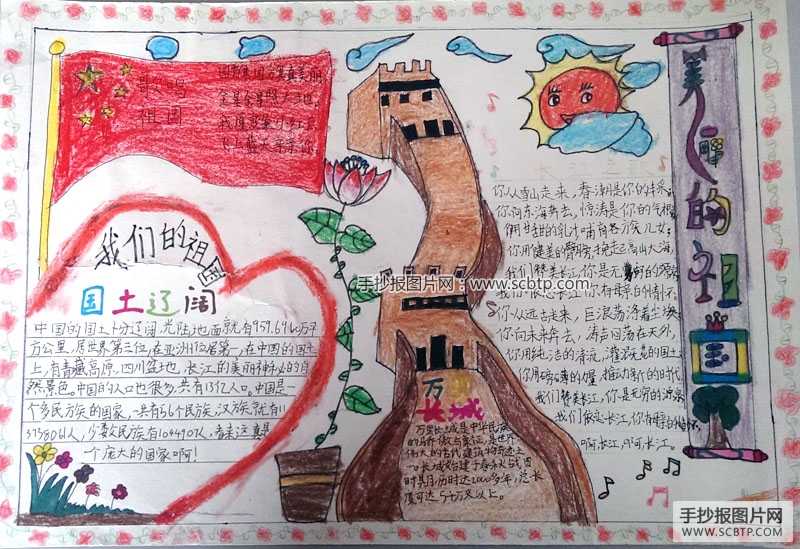 歌唱
祖国
我们的祖国
国土辽阔
中国的国土十分辽阔,光陆地面就有959.6960万平
方公里,居世界第三位,在亚洲位居第一,在中国的国土
上,有青藏高原,四川盆地,长江的美丽神秘的自
然景色。中国的人口也很多,共有13亿人口。中国是一
个多民族的国家,一共有56个民族,汉族就有11
3738061人,少数民族有1044907人,看来这真是
一个庞大的国家啊!
万里
长城
万里长城是中华民族
的骄傲与象征,是世界
伟大的古代建筑物奇迹之
一。长城始建于春秋战国
时其月,历时达2000多年,总长
度可达5千万米以上。
你从雪山走来,春潮是你的丰采;
你向东海奔去,惊涛是你的气概,
你用甘甜的乳汁哺育各族儿女;
你用健美的臂膀挽起高山大海,
我们赞美长江,你是无穷的源泉
我们依恋长江,你有母亲的情怀。
你从远古走来,巨浪荡涤着尘埃;
你向未来奔去,涛声回荡在天外,
你用纯洁的清流,灌溉花的国土
你用磅礴的力量,推动新的时代
我们赞美长江,你是无穷的源泉
我们依恋长江,你有母亲的情怀,
啊长江,啊长江。
美丽的祖国
手抄报图片网:www.scbtp.com
手抄报图片网
WWW.SCBTP.COM